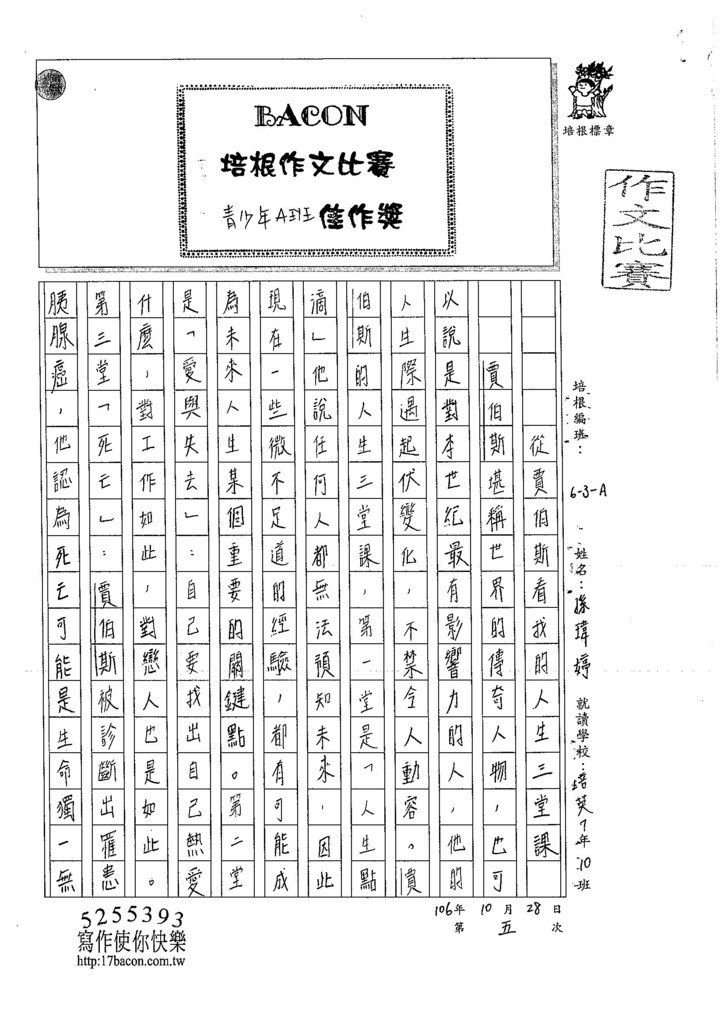 BACON
培根作文比賽
青少年A班 佳作獎
培根標章
作文比賽
培根編班：6-3-A 姓名：孫瑋婷 就讀學校：培英7年10班
從賈伯斯看我的人生三堂課
賈伯斯堪稱世界的傳奇人物，也可
以說是對本世紀最有影響力的人，他的
人生際遇起伏變化，不禁令人動容。賈
伯斯的人生三堂課，第一堂是「人生點
滴」他說任何人都無法預知未來，因此
現在一些微不足道的經驗，都有可能成
為未來人生某個重要的關鍵點。第二堂
是「愛與失去」：自己要找出自己熱愛
什麼，對工作如此，對戀人也是如此。
第三堂，「死亡」：賈伯斯被診斷出罹患
胰腺癌，他認為死亡可能是生命獨一無
106年10月28日
第五次
5255393
寫作使你快樂
http:17bacon.com.tw